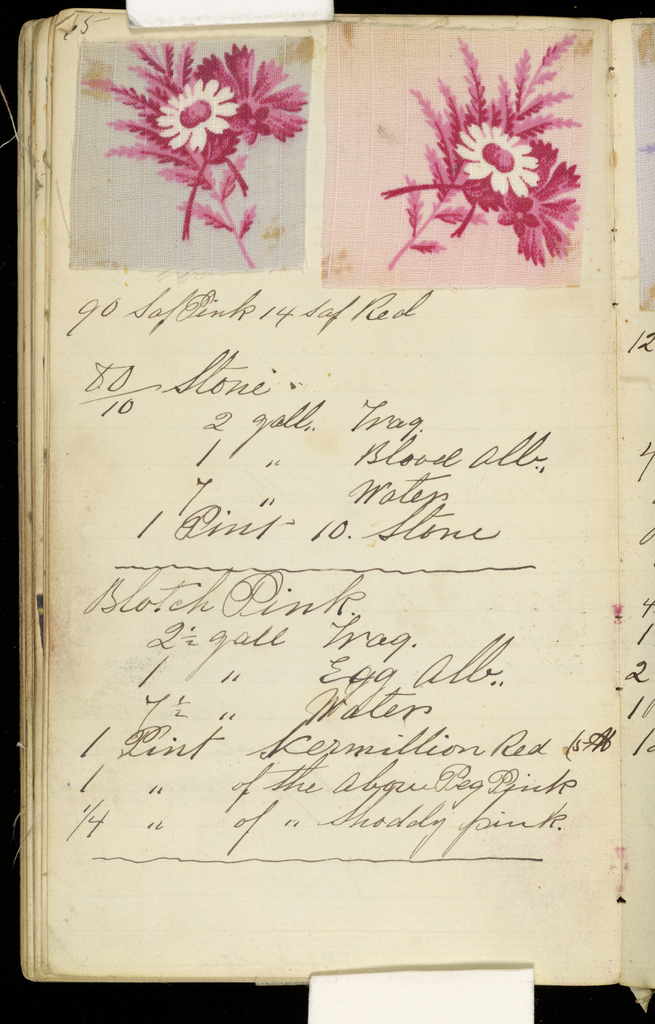 90 Saf Pink 14 Saf Red
80/10 Stone
2 gall,, Trag.
1 " Blood Alb,,
7 " Water
1 Pint 10. Stone
Blotch Pink.
2 1/2 gall Trag.
1 " Egg Alb,,
7 1/2 " Water
1 Pint Kermillion Red
1 " of the above Peg Pink
1/4 " of " Shoddy pink.
12
4
4
1
2